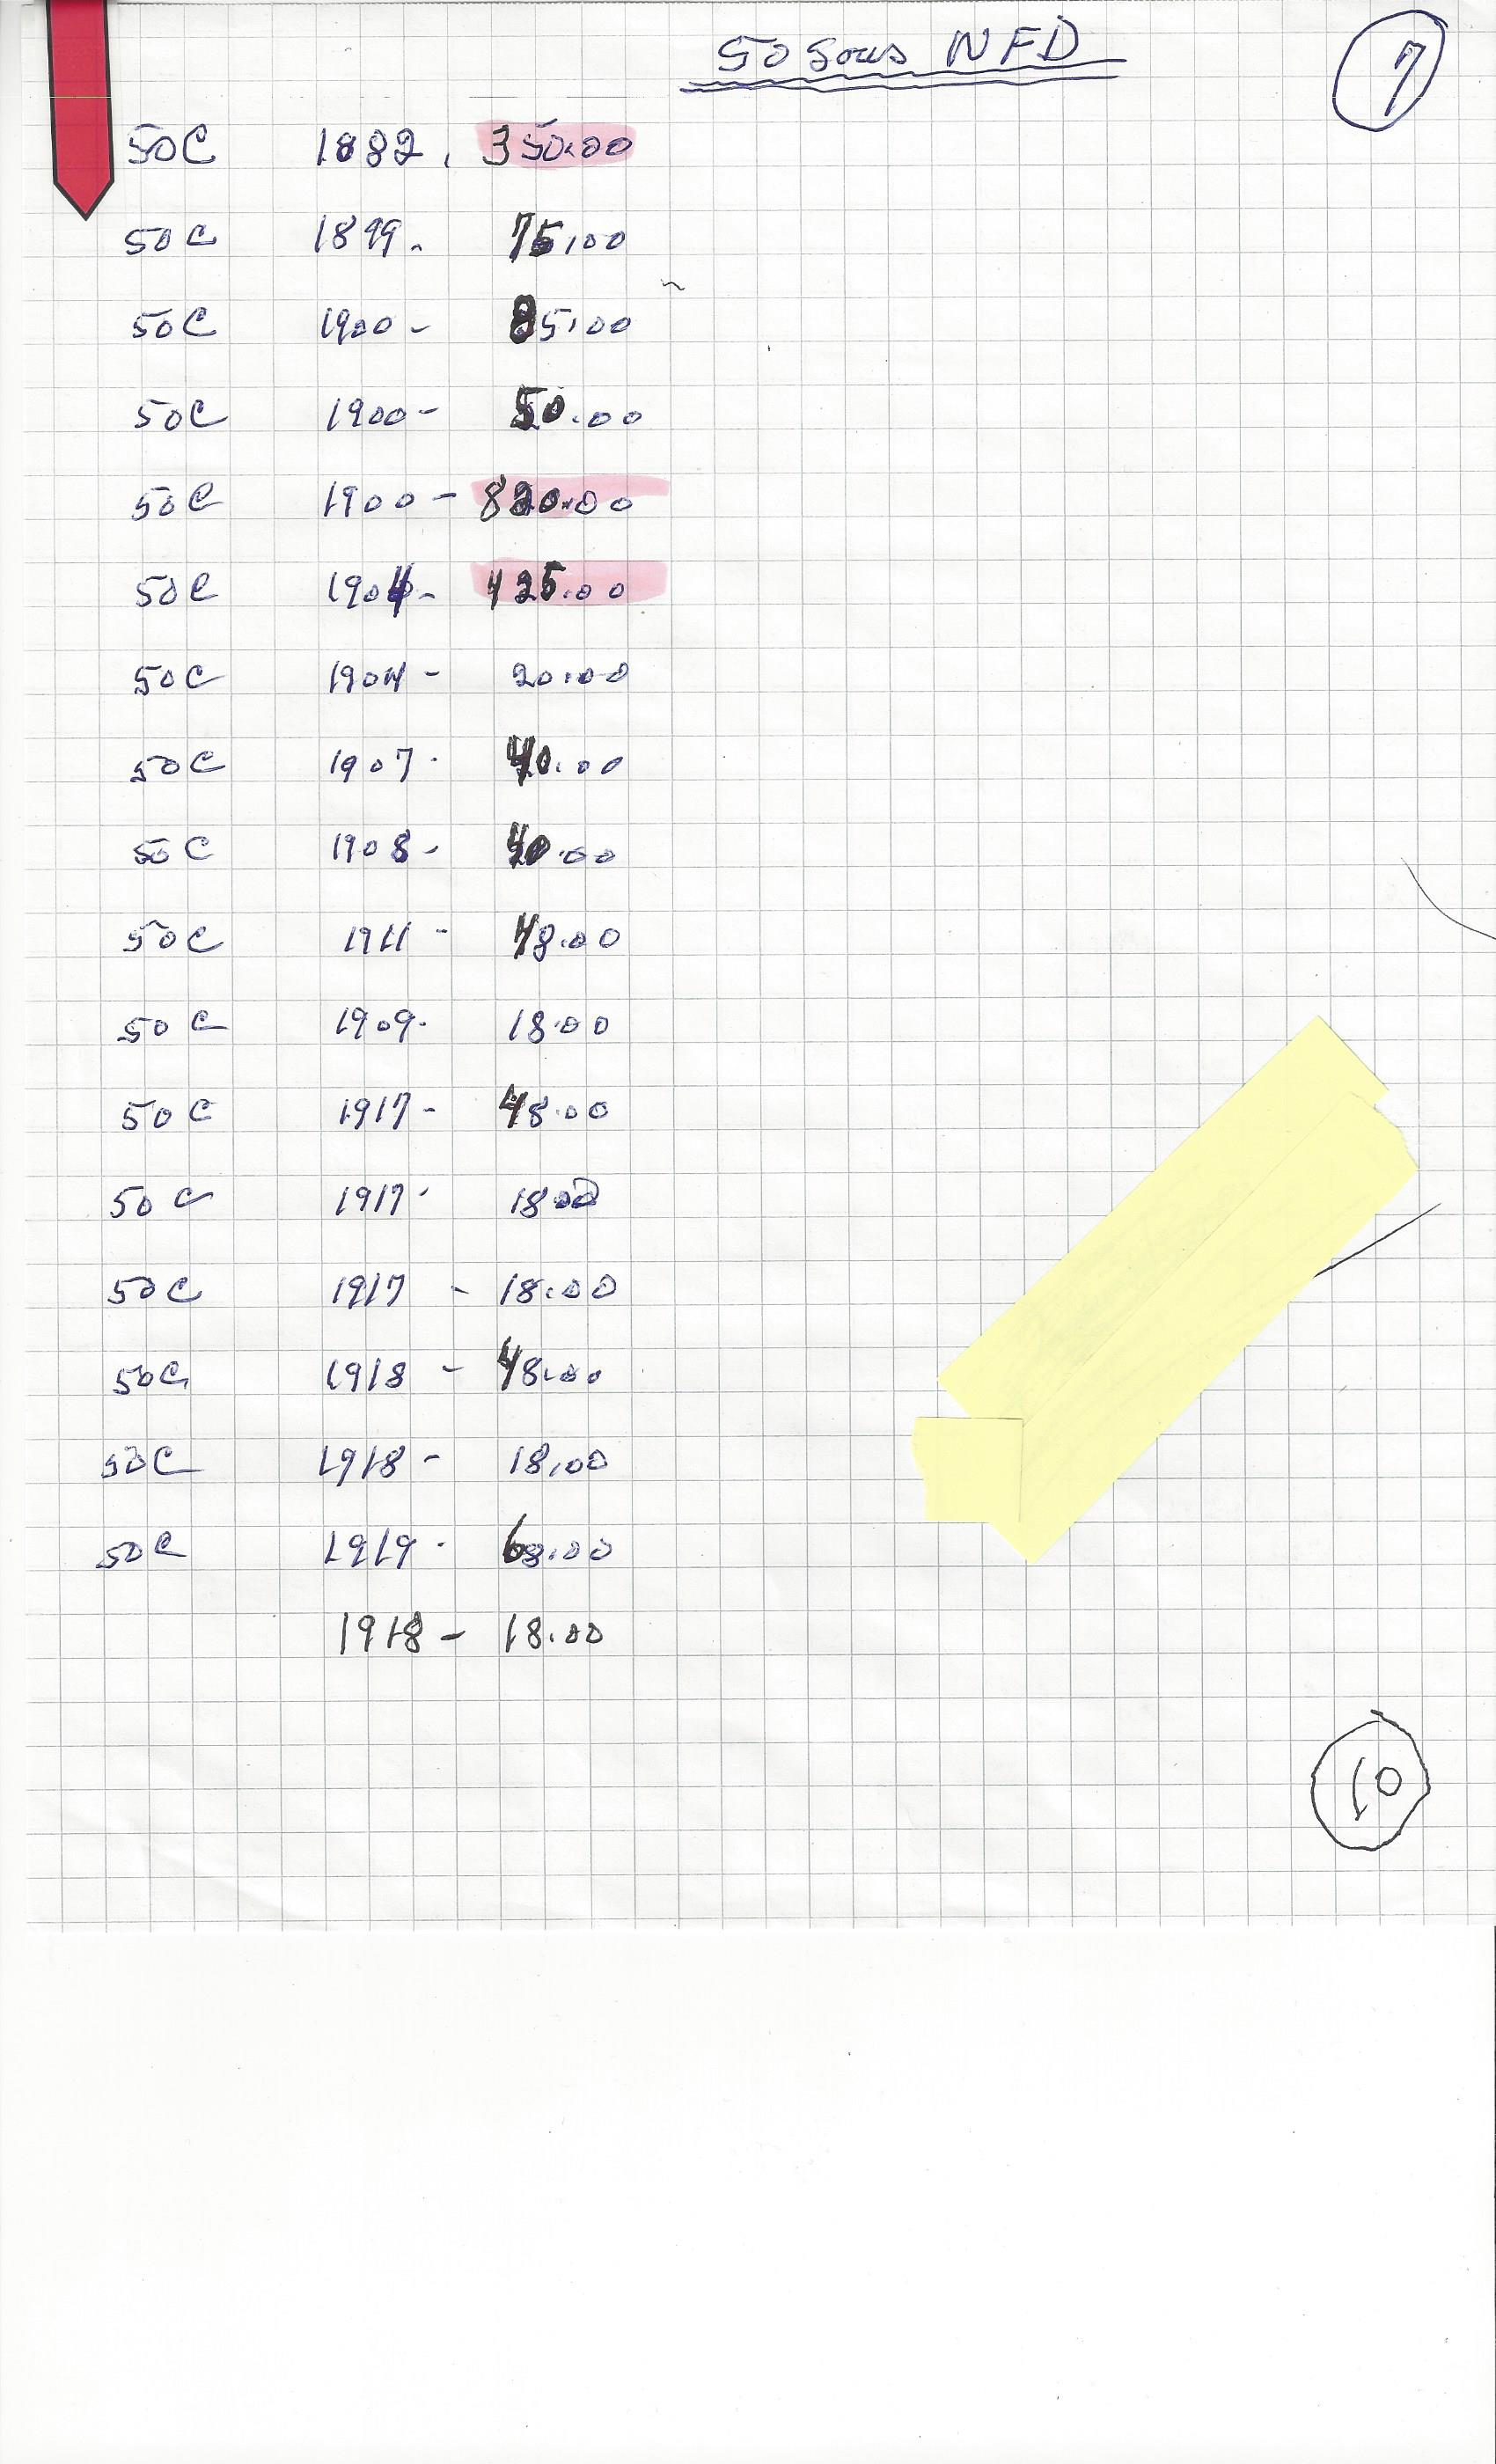 50 Sous NFD
7
50C 1882. 350.00
50C 1899. 75.00
50C 1900- 85.00
50C 1900- 50.00
50C 1900- 820.00
50C 1904- 425.00
50C 1904- 20.00
50C 1907. 40.00
50C 1908- 40.00
50C 1911- 48.00
50C 1909. 18.00
50C 1917- 48.00
50C 1917. 18.00
50C 1917 - 18.00
50C 1918 - 48.00
50C 1918- 18.00
50C 1919. 68.00
1918- 18.00
10